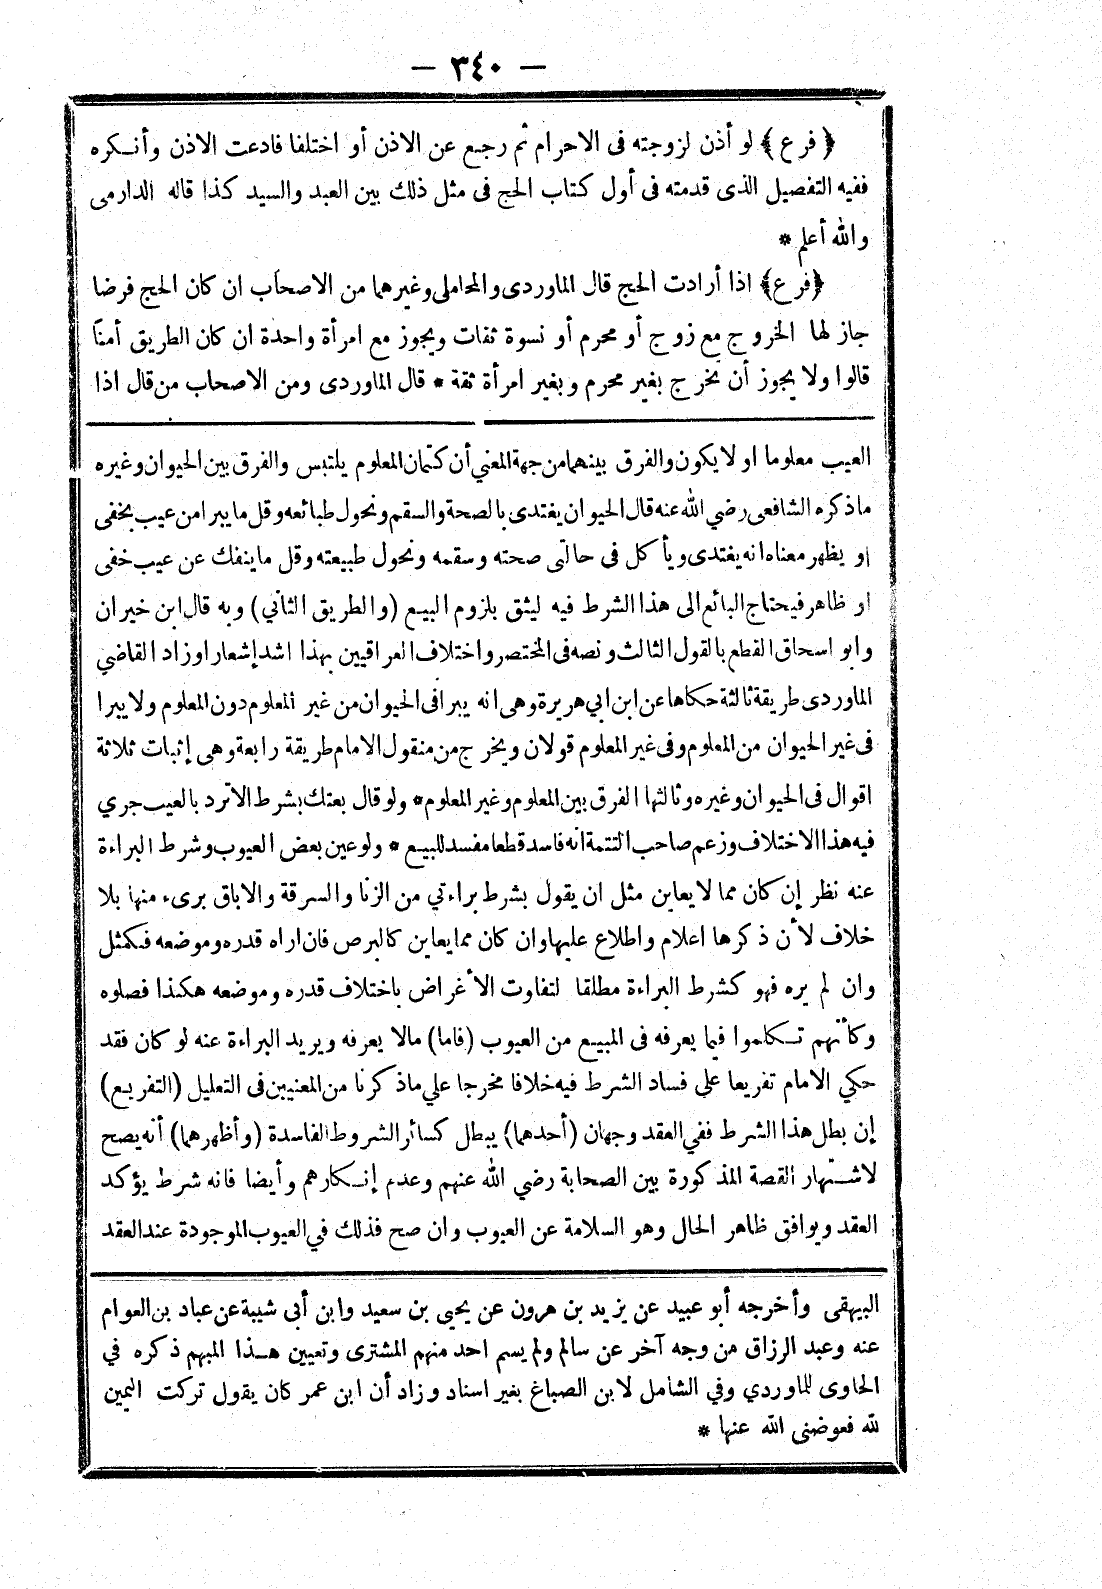 — ٣٤٠ —
﴿ فرع ﴾ لو أذن لزوجته فى الاحرام ثم رجع عن الاذن أو اختلفا فادعت الاذن وأنكره
ففيه التفصيل الذى قدمته فى أول كتاب الحج فى مثل ذلك بين العبد والسيد كذا قاله الدارمى
والله أعلم *
﴿فرع﴾ اذا أرادت الحج قال الماوردى والمحاملى وغيرهما من الاصحاب ان كان الحج فرضا
جاز لها الخروج مع زوج أو محرم أو نسوة ثقات ويجوز مع امرأة واحدة ان كان الطريق أمنا
قالوا ولا يجوز أن تخرج بغير محرم وبغير امرأة ثقة * قال الماوردى ومن الاصحاب من قال اذا
العيب معلوما او لا يكون والفرق بينهما من جهة المعني أن كتمان المعلوم يلتبس والفرق بين الحيوان وغيره
ماذكره الشافعى رضي الله عنه قال الحيوان يغتدى بالصحة والسقم وتحول طبائعه وقل ما يبرا من عيب يخفى
او يظهر معناه انه يغتدى ويأكل فى حالتى صحته وسقمه وتحول طبيعته وقل ما ينفك عن عيب خفى
او ظاهر فيحتاج البائع الى هذا الشرط فيه ليثق بلزوم البيع (والطريق الثاني) وبه قال ابن خيران
وابو اسحاق القطع بالقول الثالث ونصه فى المختصر واختلاف العراقيين بهذا اشد إشعارا وزاد القاضي
الماوردى طريقة ثالثة حكاها عن ابن ابي هريرة وهى انه يبرا فى الحيوان من غير المعلوم دون المعلوم ولا يبرا
فى غير الحيوان من المعلوم وفى غير المعلوم قولان ويخرج من منقول الامام طريقة رابعة وهى إثبات ثلاثة
اقوال فى الحيوان وغيره وثالثها الفرق بين المعلوم وغير المعلوم * ولو قال بعتك بشرط الا ترد بالعيب جري
فيه هذا الاختلاف وزعم صاحب التتمة انه فاسد قطعا مفسد للبيع * ولو عين بعض العيوب وشرط البراءة
عنه نظر إن كان مما لا يعاين مثل ان يقول بشرط براءتي من الزنا والسرقة والاباق برىء منها بلا
خلاف لأن ذكرها اعلام واطلاع عليها وان كان مما يعاين كالبرص فان اراه قدره وموضعه فكمثل
وان لم يره فهو كشرط البراءة مطلقا لتفاوت الأغراض باختلاف قدره وموضعه هكذا فصلوه
وكأنهم تكلموا فيما يعرفه فى المبيع من العيوب (فاما) مالا يعرفه ويريد البراءة عنه لو كان فقد
حكي الامام تفريعا على فساد الشرط فيه خلافا مخرجا علي ماذكرنا من المعنيين فى التعليل (التفريع)
إن بطل هذا الشرط ففي العقد وجهان (أحدهما) يبطل كسائر الشروط الفاسدة (وأظهرهما) أنه يصح
لاشتهار القصة المذكورة بين الصحابة رضي الله عنهم وعدم إنكارهم وأيضا فانه شرط يؤكد
العقد ويوافق ظاهر الحال وهو السلامة عن العيوب وان صح فذلك في العيوب الموجودة عند العقد
البيهقى وأخرجه أبو عبيد عن يزيد بن هرون عن يحيى بن سعيد وابن أبى شيبة عن عباد بن العوام
عنه وعبد الرزاق من وجه آخر عن سالم ولم يسم احد منهم المشترى وتعيين هذا المبهم ذكره في
الحاوى للماوردي وفي الشامل لابن الصباغ بغير اسناد وزاد أن ابن عمر كان يقول تركت اليمين
لله فعوضنى الله عنها *